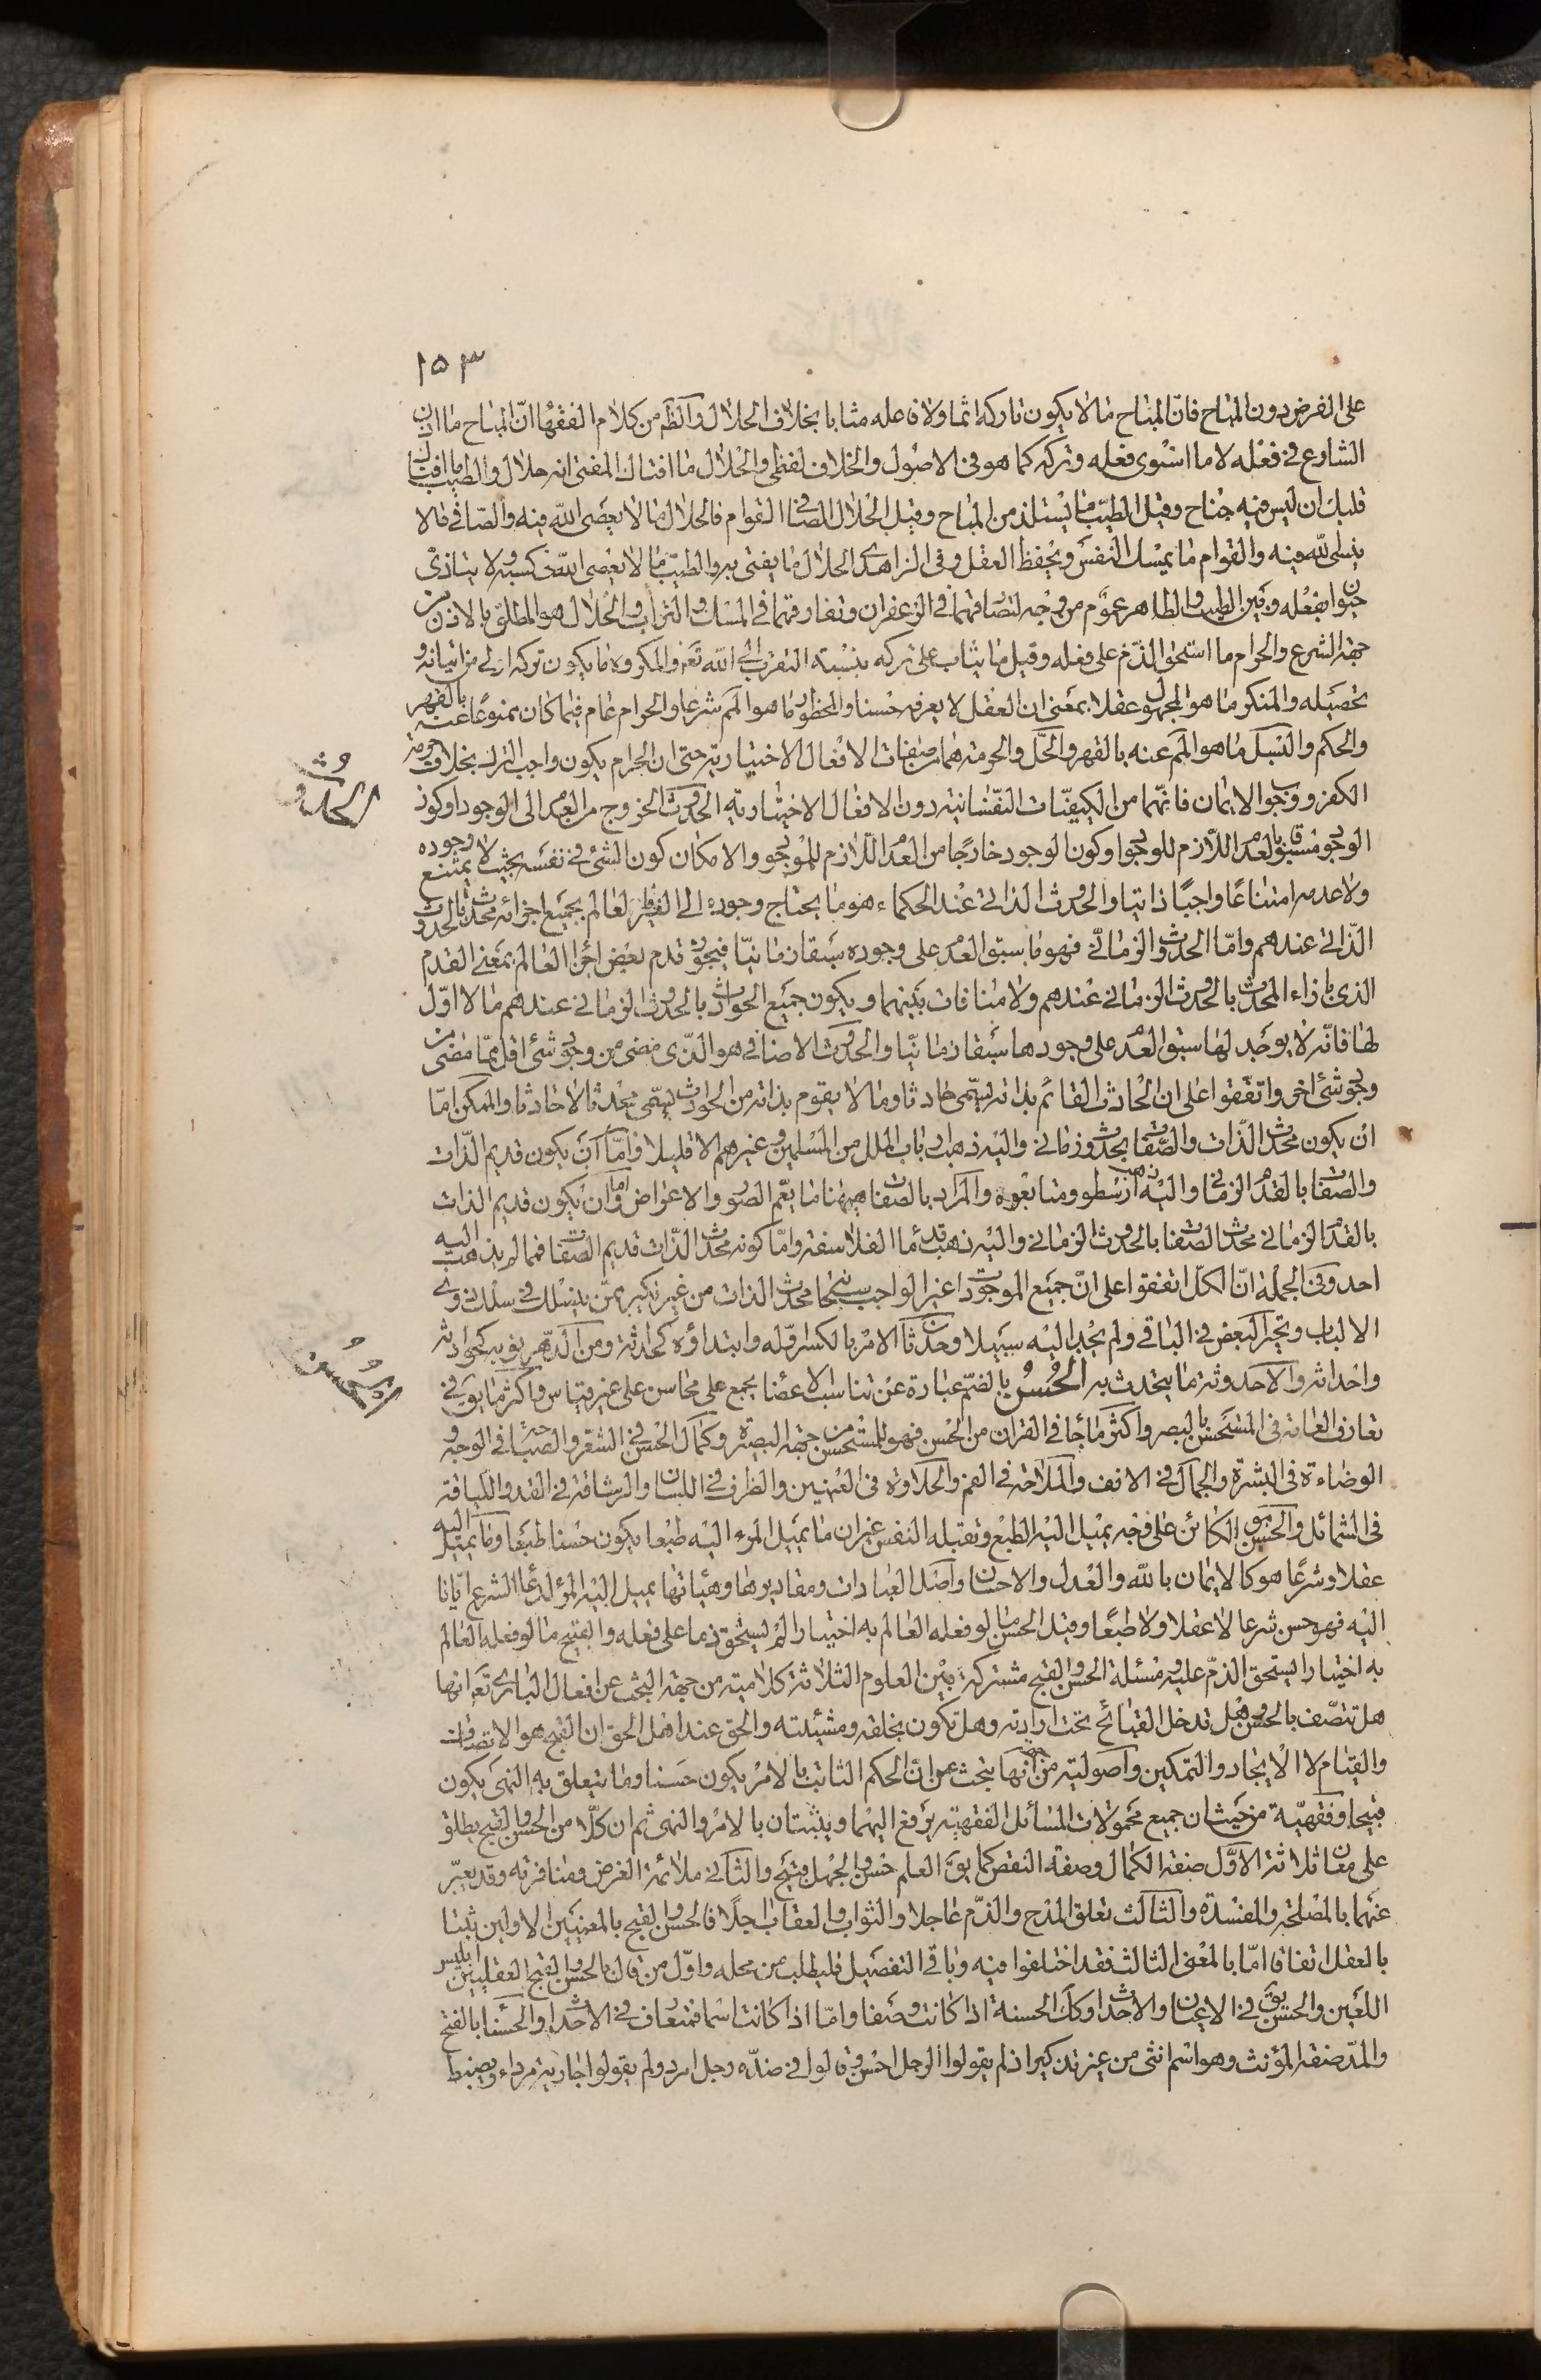 ١٥٣
على الفرض دون المباح فانّ المباح ما لا يكون تاركه اثما ولا فاعله مثابا بخلاف الحلال والظ من كلام الفقها انّ المباح ما اذن
الشارع في فعله لا ما استوى فعله وتركه كما هو في الاصول والخلاف لفظي والحلال ما افتاك المفتى انه حلال والطيب ما افتاك
قلبك ان ليس فيه جناح وقيل الطيّب ما يستلذ من المباح وقيل الحلال الصافي القوام فالحلال ما لا يعصى الله فيه والصّافي ما لا
ينسى الله فيه والقوام ما يمسك النفس ويحفظ العقل وفي الزاهدى الحلال ما يفتى به والطيّب ما لا يعصى الله في كسبه ولا يتاذى
حيوان بفعله وبين الطيب والطاهر عموم من وجه لتصادقهما في الزعفران وتفارقهما في المسك والتراب والحلال هو المطلق بالاذن من
جهة الشرع والحرام ما استحق الذّم على فعله وقيل ما يثاب على تركه بنسبة التقرب الى الله تع والمكروه ما يكون تركه اولى من اتيانه و
تحصيله والمنكر ما هو المجهول عقلا بمعنى ان العقل لا يعرفه حسنا والمحظور ما هو المم شرعا والحرام عام فيما كان ممنوعا عنه بالقهر
والحكم والبسل ما هو المم عنه بالقهر والحل والحرمة هما من صفات الافعال الاختيارية حتى ان الحرام يكون واجب الترك بخلاف حرمة
الكفر ووجوب الايمان فانهما من الكيفيّات النفسانية دون الافعال الاختيارية الحدوث الخروج من العدم الى الوجود او كون
الحدوث
الوجود مسبوقا بالعدم اللّازم للوجود او كون الوجود خارجا من العدم اللازم للموجود والامكان كون الشئ في نفسه بحيث لا يمتنع وجوده
ولا عدمه امتناعا واجبا ذاتيا والحدوث الذاتي عند الحكماء هو ما يحتاج وجوده الى الغير فالعالم بجميع اجزائه محدث بالحدوث
الذّاتي عندهم وامّا الحدوث الزماني فهو ما سبق العدم على وجوده سبقا زمانيّا فيجوز قدم بعض اجزاء العالم بمعنى القدم
الذي بازاء المحدث بالحدوث الزماني عندهم ولا منافات بينهما ويكون جميع الحوادث بالحدوث الزماني عندهم ما لا اوّل
لها فانّه لا يوجد لها سبق العدم على وجودها سبقا زمانيّا والحدوث الاضافي هو الذّي مضى من وجود شئ اقل ممّا مضى من
وجود شئ اخر واتفقوا على ان الحادث القائم بذاته يسمّى حادثا وما لا يقوم بذاته من الحوادث يسمّى محدثا لا حادثا والممكن امّا
ان يكون محدث الذّات والصّفات بحدوث زماني واليه ذهب ارباب الملل من المسلمين وغيرهم الا قليلا وامّا ان يكون قديم الذّات
والصفات بالقدم الزماني واليه ذهب ارسطو ومتابعوه والمراد بالصفات ههنا ما يعم الصور والاعراض واما ان يكون قديم الذات
بالقدم الزماني محدث الصفات بالحدوث الزماني واليه ذهب قدماء الفلاسفة وامّا كونه محدث الذّات قديم الصفات فمما لم يذهب اليه
احد وفي الجملة انّ الكلّ اتفقوا على انّ جميع الموجودات غير الواجب سبحانه محدث الذات من غير نكير ممّن ينسلك في سلك ذوي
الالباب وتحير البعض في الباقي ولم يجد اليه سبيلا وحدثان الامر بالكسر اوّله وابتداؤه كحداثته ومن الدهر نوبه كحوادثه
واحداثه والاحدوثة ما يتحدث به الحُسْن بالضمّ عبارة عن تناسب الاعضا يجمع على محاسن على غير قياس واكثر ما يق في
الحُسن
تعارف العامة في المستحسن بالبصر واكثر ما جاء في القران من الحسن فهو للمستحسن من جهة البصيرة وكمال الحسن في الشعر والصباحة في الوجه و
الوضاءة في البشرة والجمال في الانف والملاحة في الفم والحلاوة في العينين والظرف في اللسان والرشاقة في القد واللباقة
في الشمائل والحسن هو الكائن على وجه يميل اليه الطبع وتقبله النفس غير ان ما يميل المرء اليه طبعا يكون حسنا طبعا وما يميل اليه
عقلا وشرعا هو كالايمان بالله والعدل والاحسان واصل العبادات ومقاديرها وهيئاتها يميل اليه المرء لدعاء الشرع ايّانا
اليه فهو حسن شرعا لا عقلا ولا طبعا وقيل الحسن ما لو فعله العالم به اختيارا لم يستحق ذما على فعله والقبيح ما لو فعله العالم
به اختيارا يستحق الذمّ عليه ومسئلة الحسن والقبح مشتركة بين العلوم الثلاثة كلامية من جهة البحث عن افعال الباري تع انها
هل تتصف بالحسن وهل تدخل القبائح تحت ارادته وهل تكون بخلقه ومشيئته والحق عند اهل الحق ان القبح هو الاتصاف
والقيام لا الايجاد والتمكين واصولية من انها تبحث عن ان الحكم الثابت بالامر يكون حسنا وما يتعلق به النهي يكون
قبيحا وفقهيّة من حيث ان جميع محمولات المسائل الفقهية يرفع اليهما ويثبتان بالامر والنهي ثم ان كلا من الحسن والقبح يطلق
على معان ثلاثة الاوّل صفة الكمال وصفة النقص كما يق العلم حسن والجهل قبيح والثاني ملائمة الغرض ومنافرته وقد يعبّر
عنهما بالمصلحة والمفسدة والثالث تعلق المدح والذّم عاجلا والثواب والعقاب اجلا فالحسن والقبح بالمعنيين الاولين يثبتا
بالعقل اتفاقا امّا بالمعنى الثالث فقد اختلفوا فيه وباقي التفصيل فليطلب من محله واوّل من قال بالحسن والقبح العقليين ابليس
اللعين والحسن يق في الاعيان والاحداث وكك الحسنة اذا كانت وصفا وامّا اذا كانت اسما فمتعارف في الاحداث والحسنا بالفتح
والمدّ صفة المؤنث وهو اسم انثى من غير تذكير اذ لم يقولوا الرجل احسن وقالوا في ضدّه رجل امرد ولم يقولوا جارية مرداء ويضبط